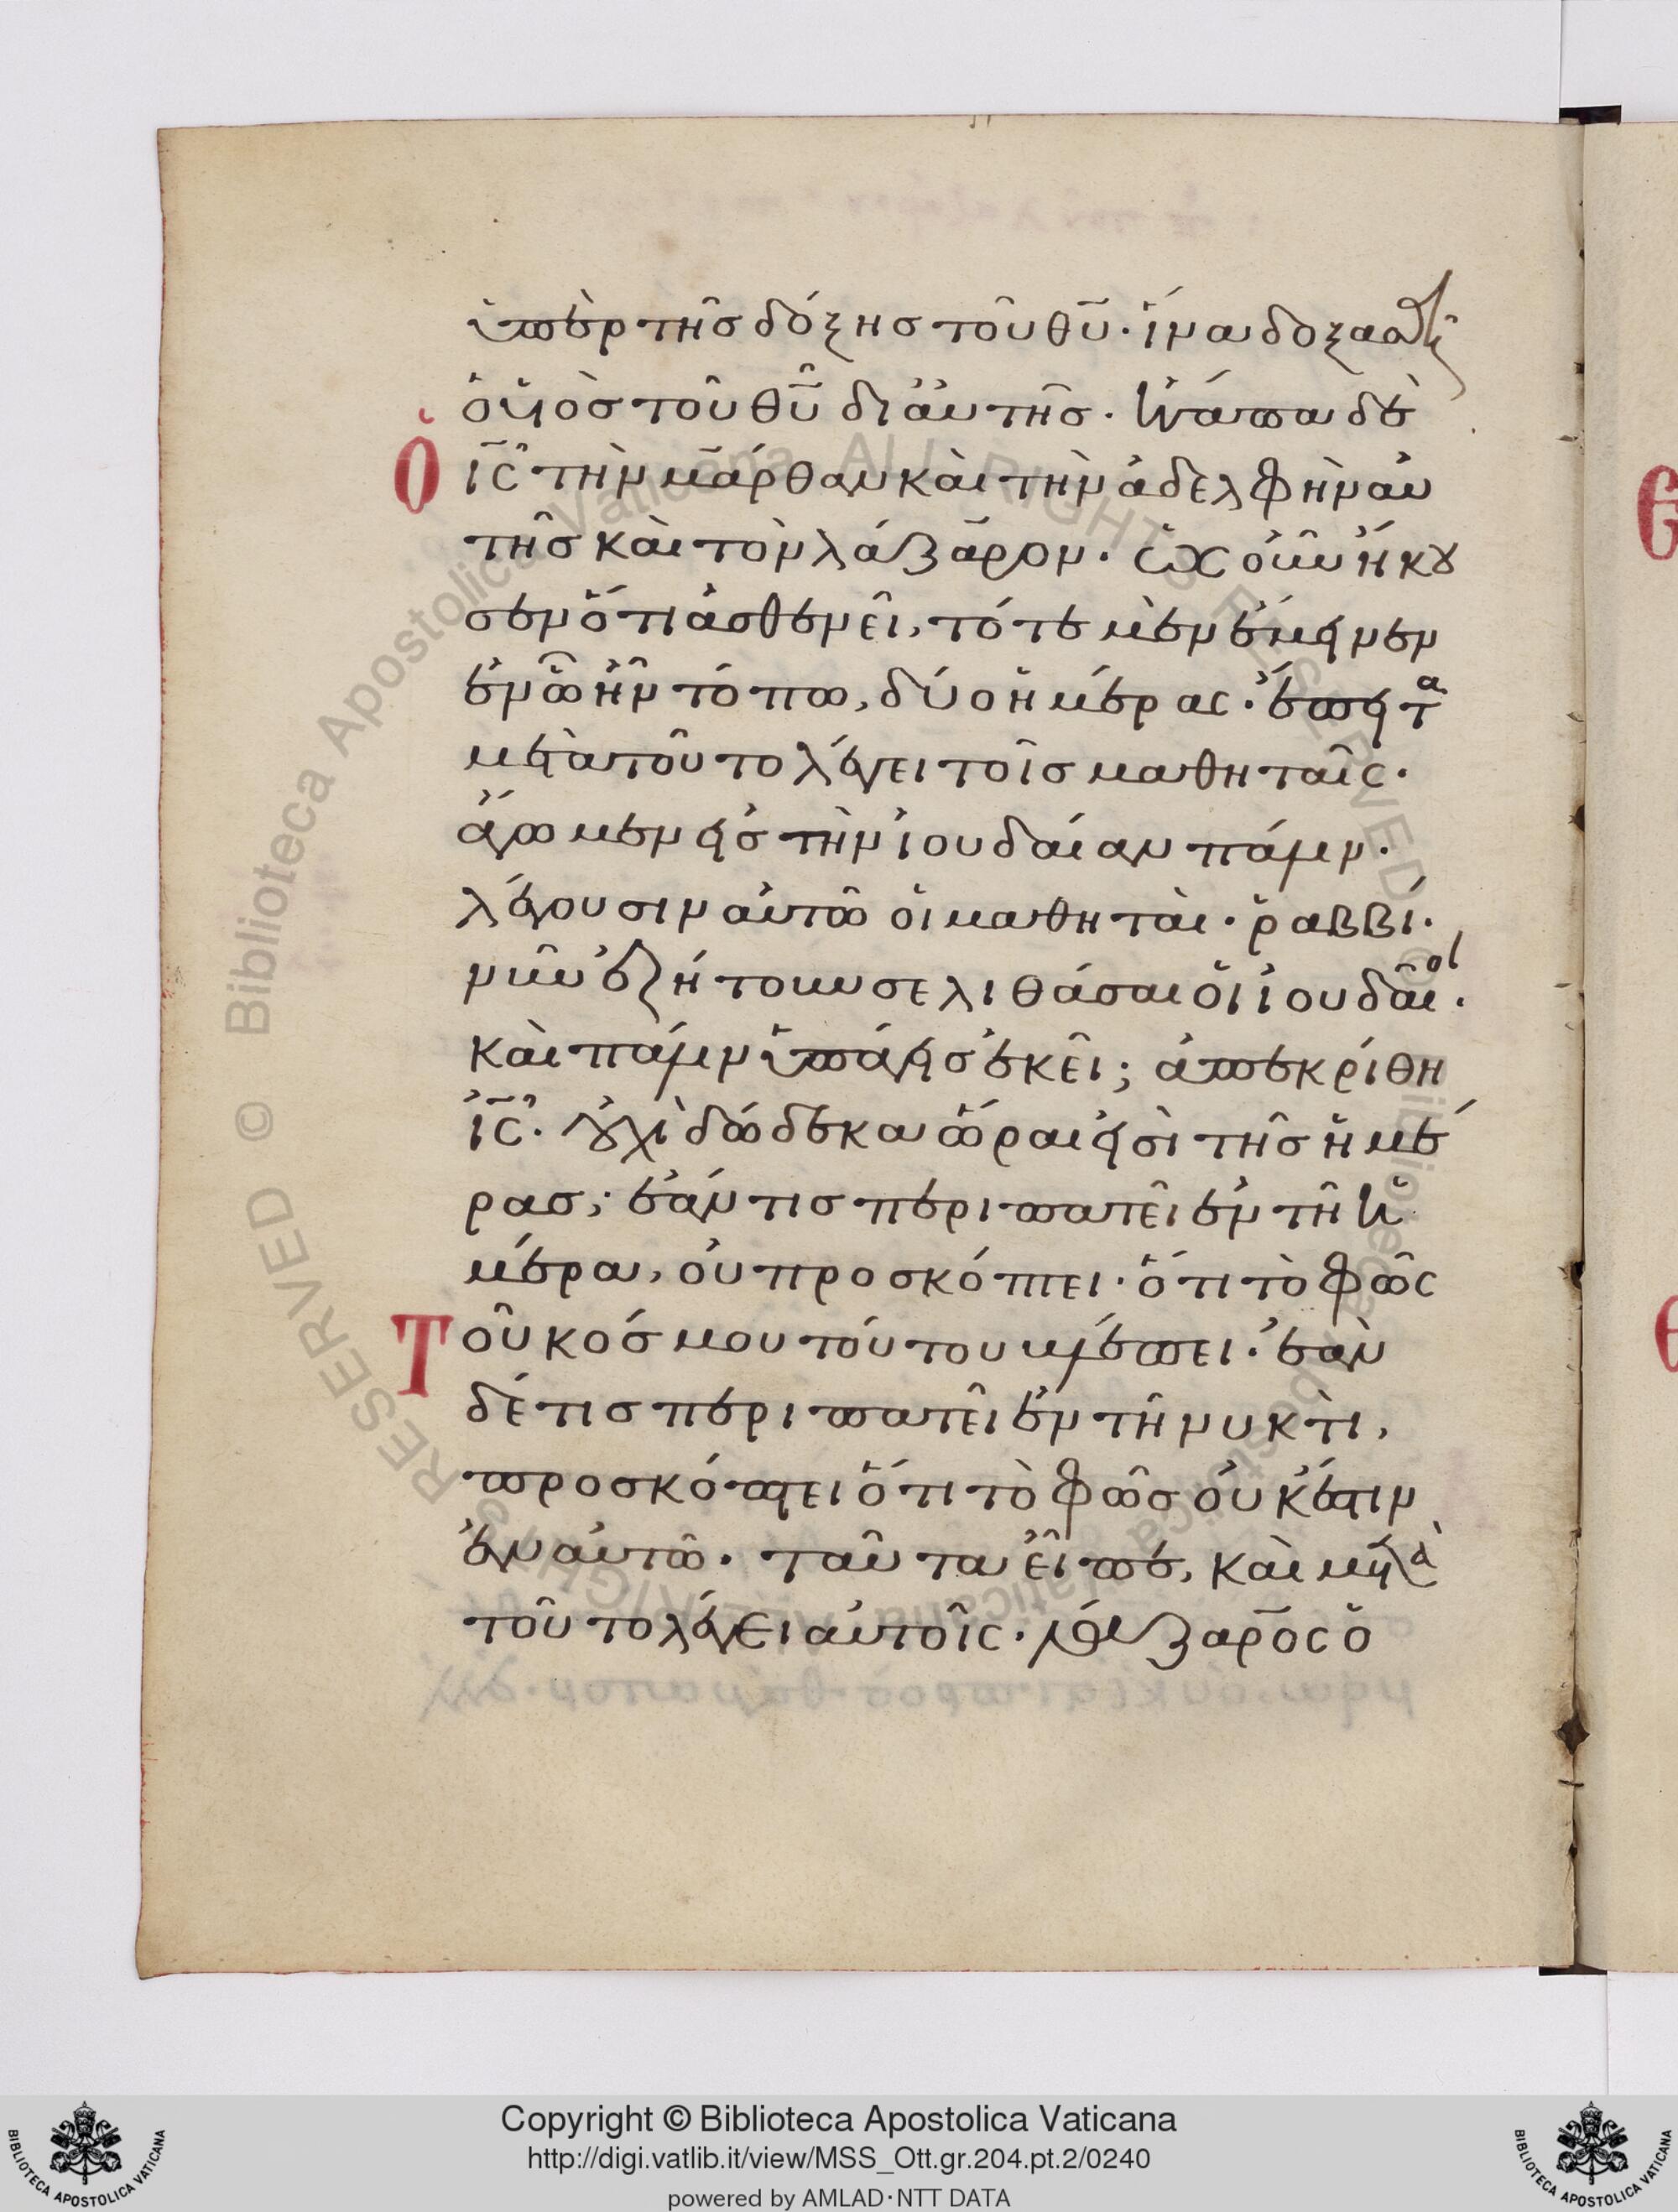 ὑπὲρ τῆσ δόξησ τοῦ θῦ· ἵνα δοξασθῆ
ὁ υἱὸσ τοῦ θῦ δι ἀυτῆσ. ἠγάπα δὲ
Ὁ ἰς τὴν μάρθαν καὶ τὴν ἀδελφὴν ἀυ
τῆσ καὶ τὸν λάζαρον. ὡς οὖν ἤκου
σεν ὅτι ἀσθενεῖ, τότε μὲν ἔμεινεν
ἐν ὧ ἦν τόπω, δύο ἡμέρας. ἔπειτα
μετὰ τοῦτο λέγει τοῖσ μαθηταῖς.
ἄγωμεν εἰσ τὴν ἰουδαίαν πάλιν.
λέγουσιν αὐτῶ ὁι μαθηταὶ. ῥαββί.
νῦν ἐζήτουν σε λιθάσαι ὁι ἰουδαῖοι.
καὶ πάλιν ὑπάγεισ ἐκεῖ; ἀπεκρίθη
ἰς. οὐχὶ δώδεκα ὧραι εἰσὶ τῆσ ἡμέ
ρασ; ἐάν τισ περιπατεῖ ἐν τῆ ἡ
μέρα, οὐ προσκόπτει. ὅτι τὸ φῶς
Τοῦ κόσμου τούτου βλέπει. ἐὰν
δέ τισ περιπατεῖ ἐν τῆ νυκτὶ,
προσκόπτει ὅτι τὸ φῶσ οὐκ ἔστιν
ἐν αὐτῶ. ταῦτα εἶπε, καὶ μετὰ
τοῦτο λέγει αὐτοῖς. λάζαρος ὁ
Copyright © Biblioteca Apostolica Vaticana
http://digi.vatlib.it/view/MSS_Ott.gr.204.pt.2/0240
powered by AMLAD·NTT DATA
BIBLIOTECA APOSTOLICA VATICANA
BIBLIOTECA APOSTOLICA VATICANA